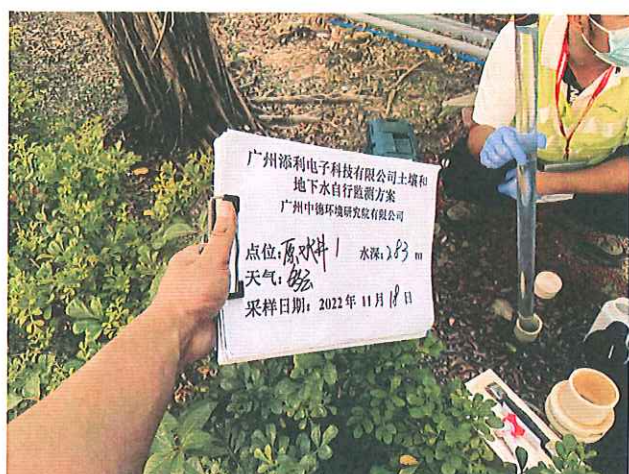 广州添利电子科技有限公司土壤和
地下水自行监测方案
广州中德环境研究院有限公司
点位:原水井1 水深:2.83 m
天气:多云
采样日期:2022年11月18日